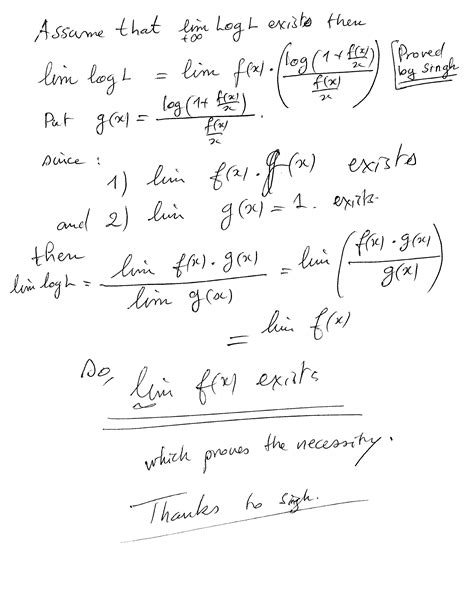 Assume that lim_{+∞} Log L exists then
lim log L = lim f(x) · ( log(1 + f(x)/x) / (f(x)/x) ) [Proved by Singh]
Put g(x) = log(1 + f(x)/x) / (f(x)/x) .
since :
1) lim f(x) · g(x) exists
and 2) lim g(x) = 1 . exists.
then
lim log L = lim f(x) · g(x) / lim g(x) = lim ( f(x) · g(x) / g(x) )
= lim f(x)
So, lim f(x) exists
which proves the necessity.
Thanks to Singh.